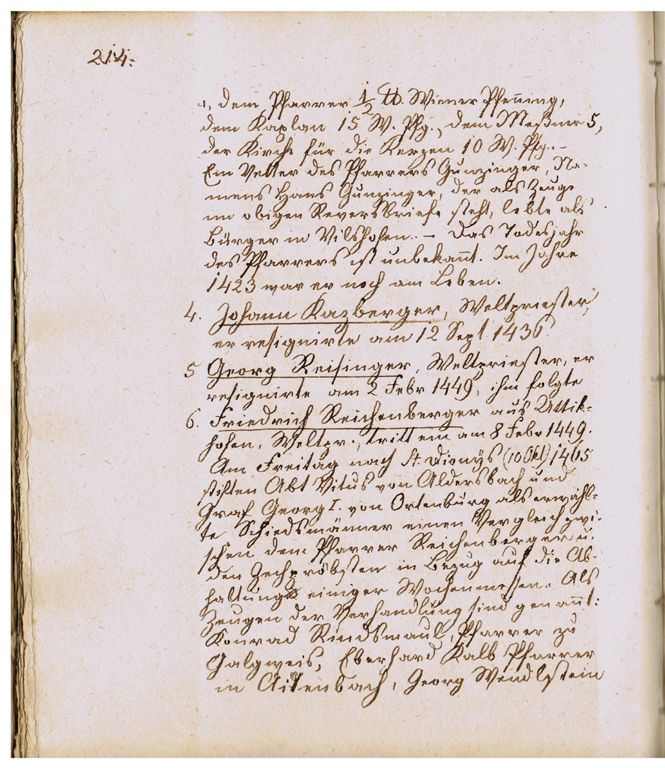 214.
dem Pfarrer ½ ℔. Wiener Pfennig,
dem Kaplan 15 W. Pfg., dem Meßner 5,
der Kirche für die Kerzen 10 W. Pfg. –
Ein Vetter des Pfarrers Gunzinger, Na-
mens Hans Gunzinger, der als Zeuge
im obigen Reversbriefe steht, lebte als
Bürger in Vilshofen. – Das Todesjahr
des Pfarrers ist unbekannt. Im Jahre
1423 war er noch am Leben.
4. Johann Kazberger, Weltpriester,
er resignirte am 12 Sept 1436.
5 Georg Reisinger, Weltpriester, er
resignirte am 2 Febr 1449, ihm folgte
6. Friedrich Reichenberger aus Attik-
hofen, Weltpr., tritt ein am 8 Febr 1449.
Am Freitag nach St. Dionys (10 Okt) 1465
stiften Abt Vitus von Aldersbach und
Graf Georg I. von Ortenburg als erwähl-
te Schiedsmänner einen Vergleich zwi-
schen dem Pfarrer Reichenberger u.
den Zechpröbsten in Bezug auf die Ab-
haltung einiger Wochenmessen. Als
Zeugen der Verhandlung sind genannt:
Konrad Rindsmaul, Pfarrer zu
Galgweis, Eberhard Kalb Pfarrer
in Aidenbach, Georg Wendlstein